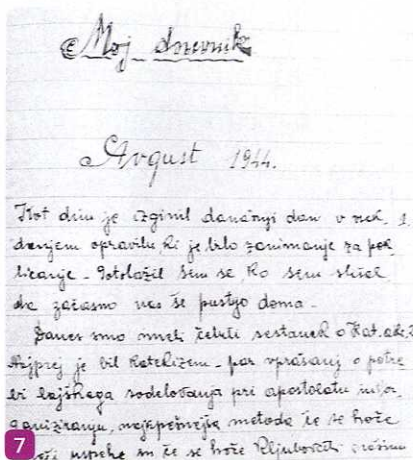 Moj dnevnik
Avgust 1944.
Kot dim je izginil današnji dan v vsak 1.
danjem opravilu, ki je bilo zanimanje za pok
licanje. Potolažil sem se, ko sem slišal,
da začasno nas še pustijo doma.
Danes smo imeli četrti sestanek o Kat. akc. 2
Najprej je bil katekizem - par vprašanj o potre
bi lajškega sodelovanja pri apostolatu
ganiziranju, najuspešnejša metoda če se hoče
uspehe in če se hoče kljubovati
7